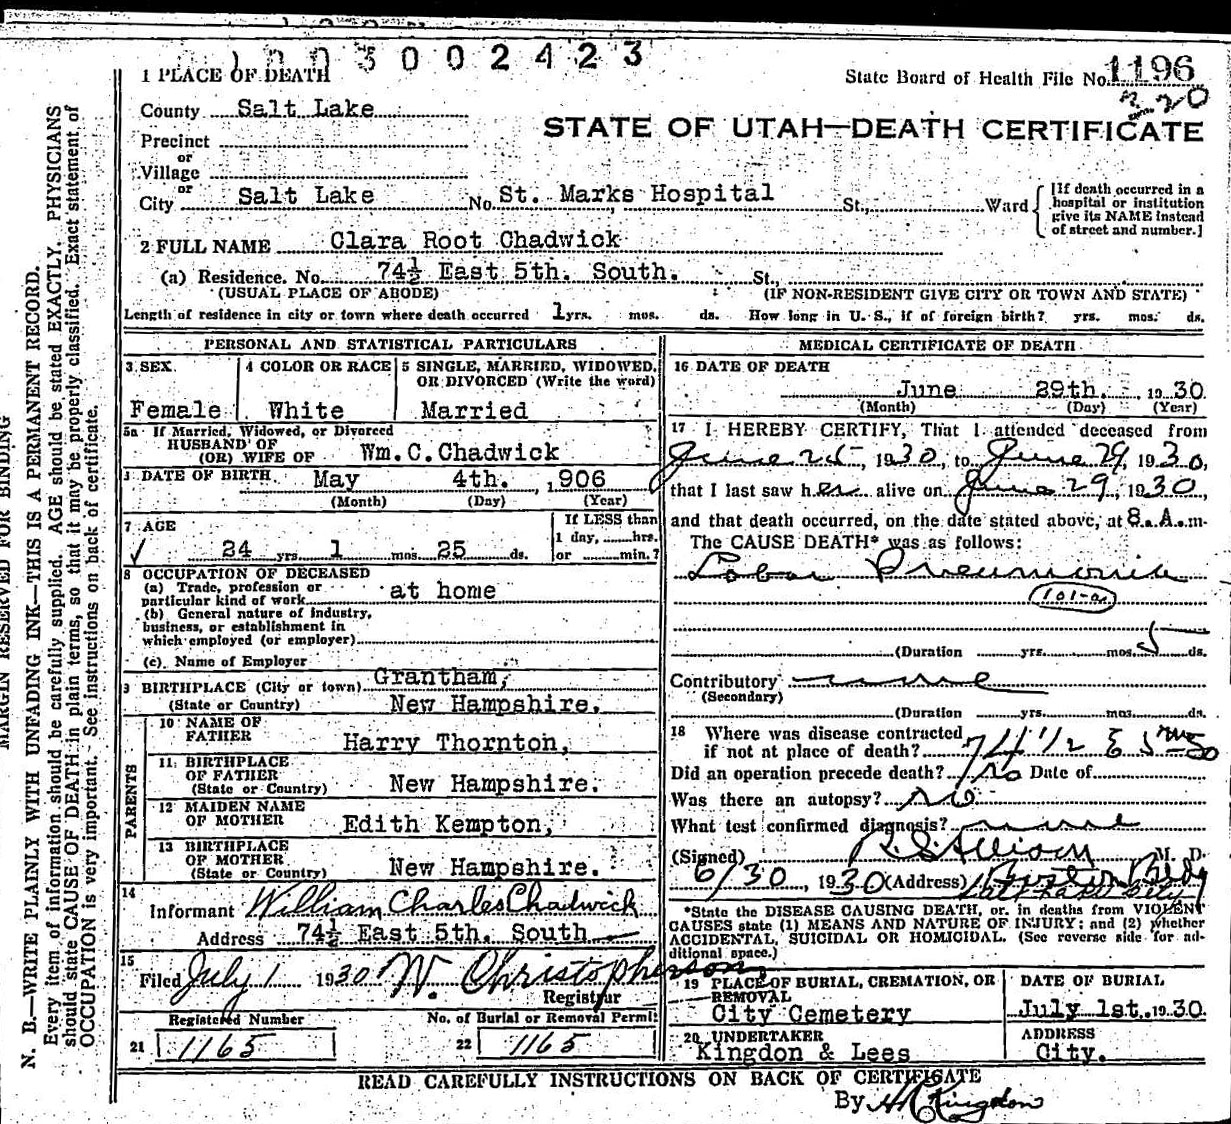 3 0 0 2 4 2 3
1 PLACE OF DEATH
State Board of Health File No. 1196
County Salt Lake
220
STATE OF UTAH—DEATH CERTIFICATE
Precinct
or
Village
or
City Salt Lake No. St. Marks Hospital St., Ward
[If death occurred in a hospital or institution give its NAME instead of street and number.]
2 FULL NAME Clara Root Chadwick
(a) Residence. No. 74½ East 5th. South. St.,
(USUAL PLACE OF ABODE) (IF NON-RESIDENT GIVE CITY OR TOWN AND STATE)
Length of residence in city or town where death occurred 1 yrs. mos. ds. How long in U. S., if of foreign birth? yrs. mos. ds.
PERSONAL AND STATISTICAL PARTICULARS
3 SEX
Female
4 COLOR OR RACE
White
5 SINGLE, MARRIED, WIDOWED,
OR DIVORCED (Write the word)
Married
5a If Married, Widowed, or Divorced
HUSBAND OF
(OR) WIFE OF Wm.C.Chadwick
DATE OF BIRTH May 4th. , 1906
(Month) (Day) (Year)
7 AGE
24 yrs. 1 mos. 25 ds.
If LESS than
1 day, hrs.
or min.?
8 OCCUPATION OF DECEASED
(a) Trade, profession or
particular kind of work at home
(b) General nature of industry,
business, or establishment in
which employed (or employer)
(c) Name of Employer
9 BIRTHPLACE (City or town) Grantham,
(State or Country) New Hampshire.
PARENTS
10 NAME OF
FATHER Harry Thornton,
11 BIRTHPLACE
OF FATHER
(State or Country) New Hampshire.
12 MAIDEN NAME
OF MOTHER Edith Kempton,
13 BIRTHPLACE
OF MOTHER
(State or Country) New Hampshire.
14
Informant William Charles Chadwick
Address 74½ East 5th. South
15
Filed July 1 1930 W. Christopherson,
Registrar
Registered Number
21 1165
No. of Burial or Removal Permit
22 1165
MEDICAL CERTIFICATE OF DEATH
16 DATE OF DEATH
June 29th. , 1930
(Month) (Day) (Year)
17 I HEREBY CERTIFY, That I attended deceased from
June 25, 1930, to June 29, 1930,
that I last saw her alive on June 29, 1930,
and that death occurred, on the date stated above, at 8.A.m.
The CAUSE DEATH* was as follows:
Lobar Pneumonia
101-a
(Duration yrs. mos. 5 ds.
Contributory none
(Secondary)
(Duration yrs. mos. ds.
18 Where was disease contracted
if not at place of death? 74 1/2 E 5th So
Did an operation precede death? No Date of
Was there an autopsy? No
What test confirmed diagnosis? none
(Signed) R.S. Allison M. D.
6/30, 1930 (Address) Boston Bldg
Salt Lake City
*State the DISEASE CAUSING DEATH, or, in deaths from VIOLENT
CAUSES state (1) MEANS AND NATURE OF INJURY; and (2) whether
ACCIDENTAL, SUICIDAL OR HOMICIDAL. (See reverse side for ad-
ditional space.)
19 PLACE OF BURIAL, CREMATION, OR
REMOVAL
City Cemetery
DATE OF BURIAL
July 1st. 1930.
20 UNDERTAKER
Kingdon & Lees
ADDRESS
City.
READ CAREFULLY INSTRUCTIONS ON BACK OF CERTIFICATE
By Kingdon
MARGIN RESERVED FOR BINDING
N. B.—WRITE PLAINLY WITH UNFADING INK—THIS IS A PERMANENT RECORD.
Every item of information should be carefully supplied. AGE should be stated EXACTLY. PHYSICIANS
should state CAUSE OF DEATH in plain terms, so that it may be properly classified. Exact statement of
OCCUPATION is very important. See instructions on back of certificate.